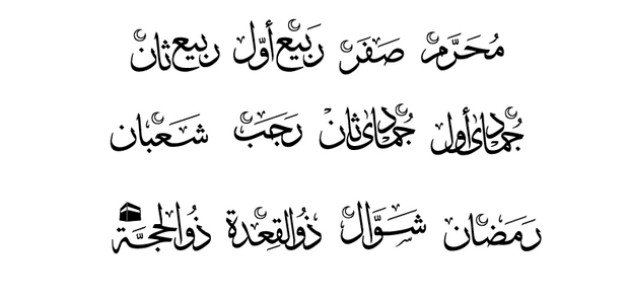 مُحَرَّم صَفَر رَبيع أوّل ربيع ثان
جُمادى أول جُمادى ثان رَجَب شَعبان
رَمَضان شَوَّال ذُو القِعْدة ذُو الحجَّة